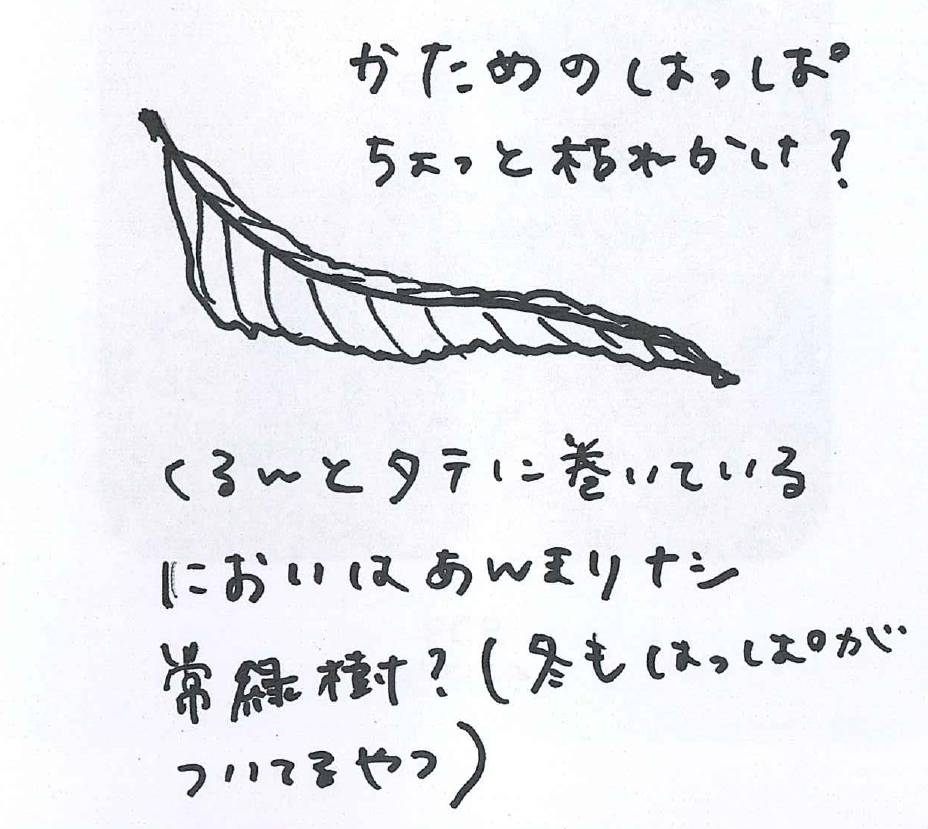 かためのはっぱ
ちょっと枯れかけ？
くるんとタテに巻いている
においはあんまりナシ
常緑樹？（冬もはっぱが
ついてるやつ）